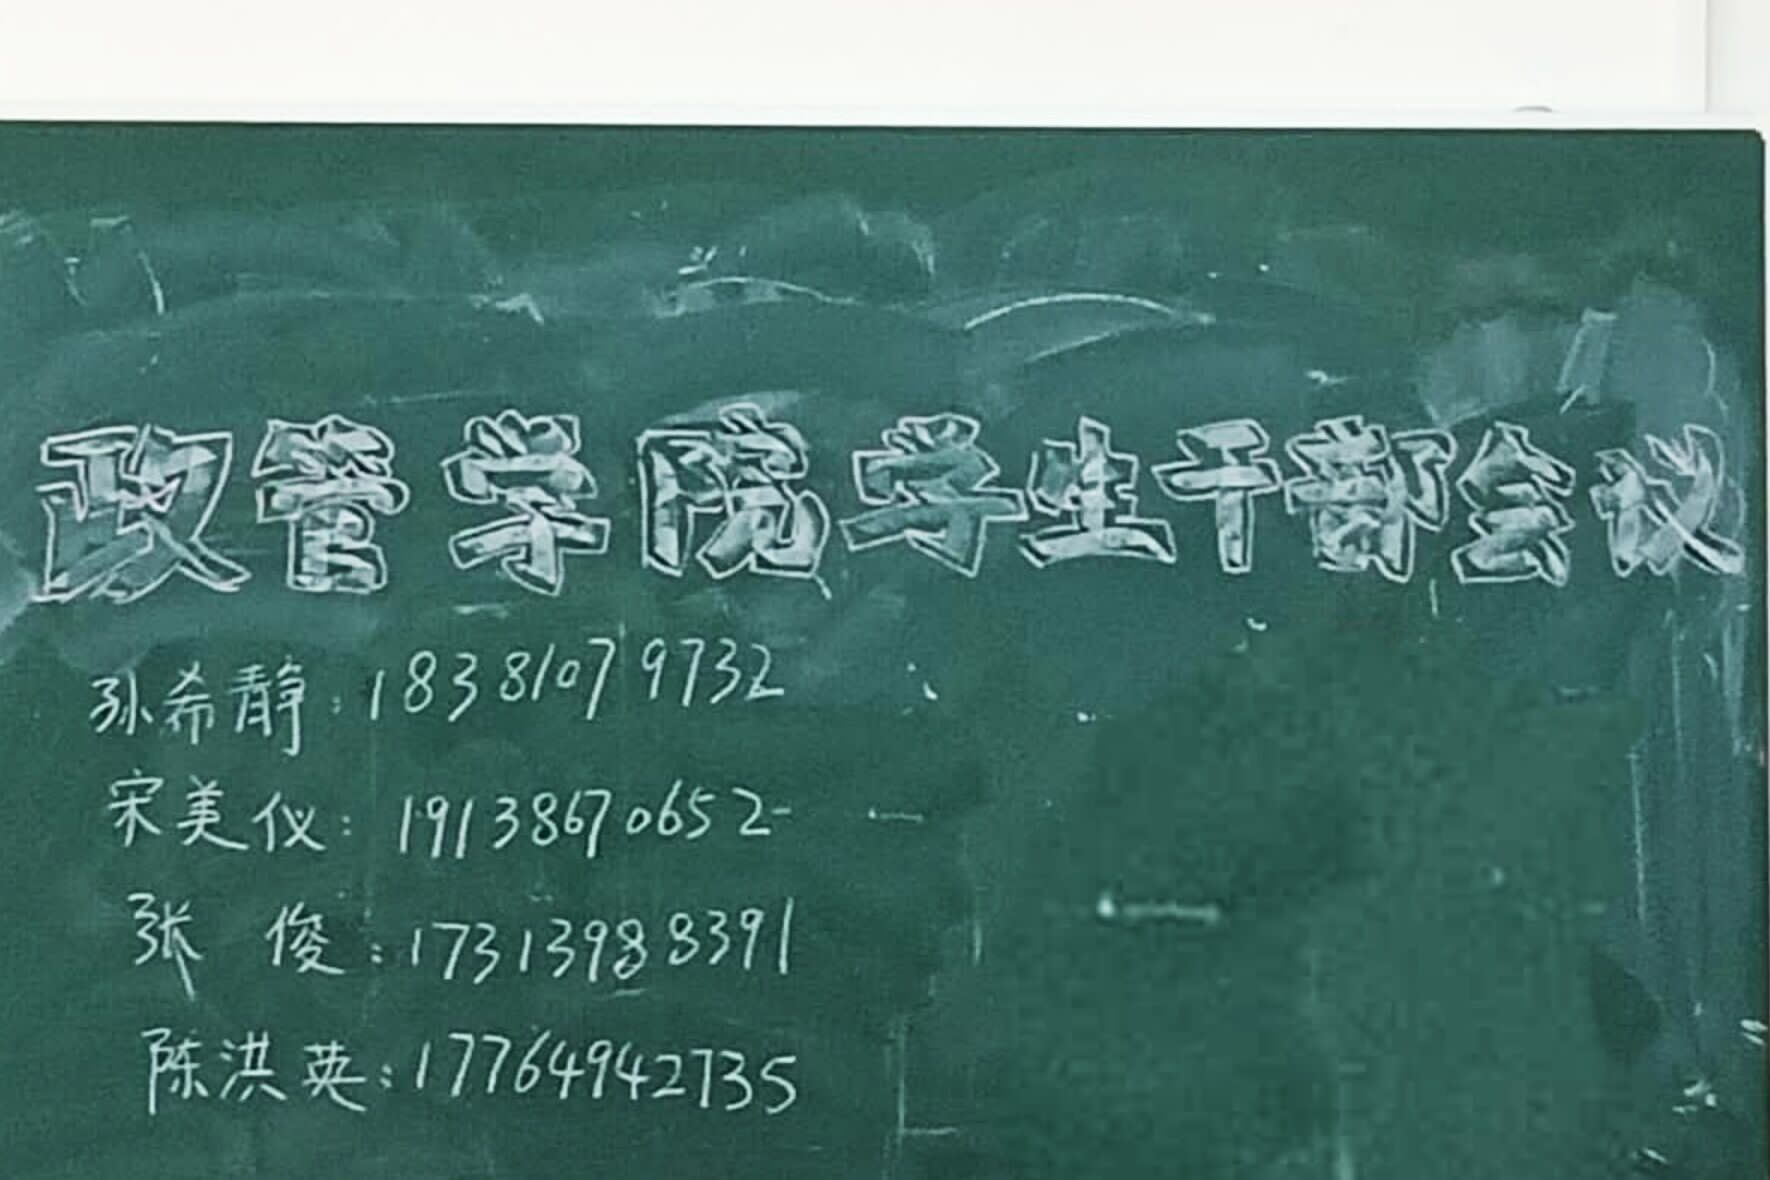 政管学院学生干部会议
孙希静:18381079732
宋美仪:19138670652
张俊:17313988391
陈洪英:17764942735